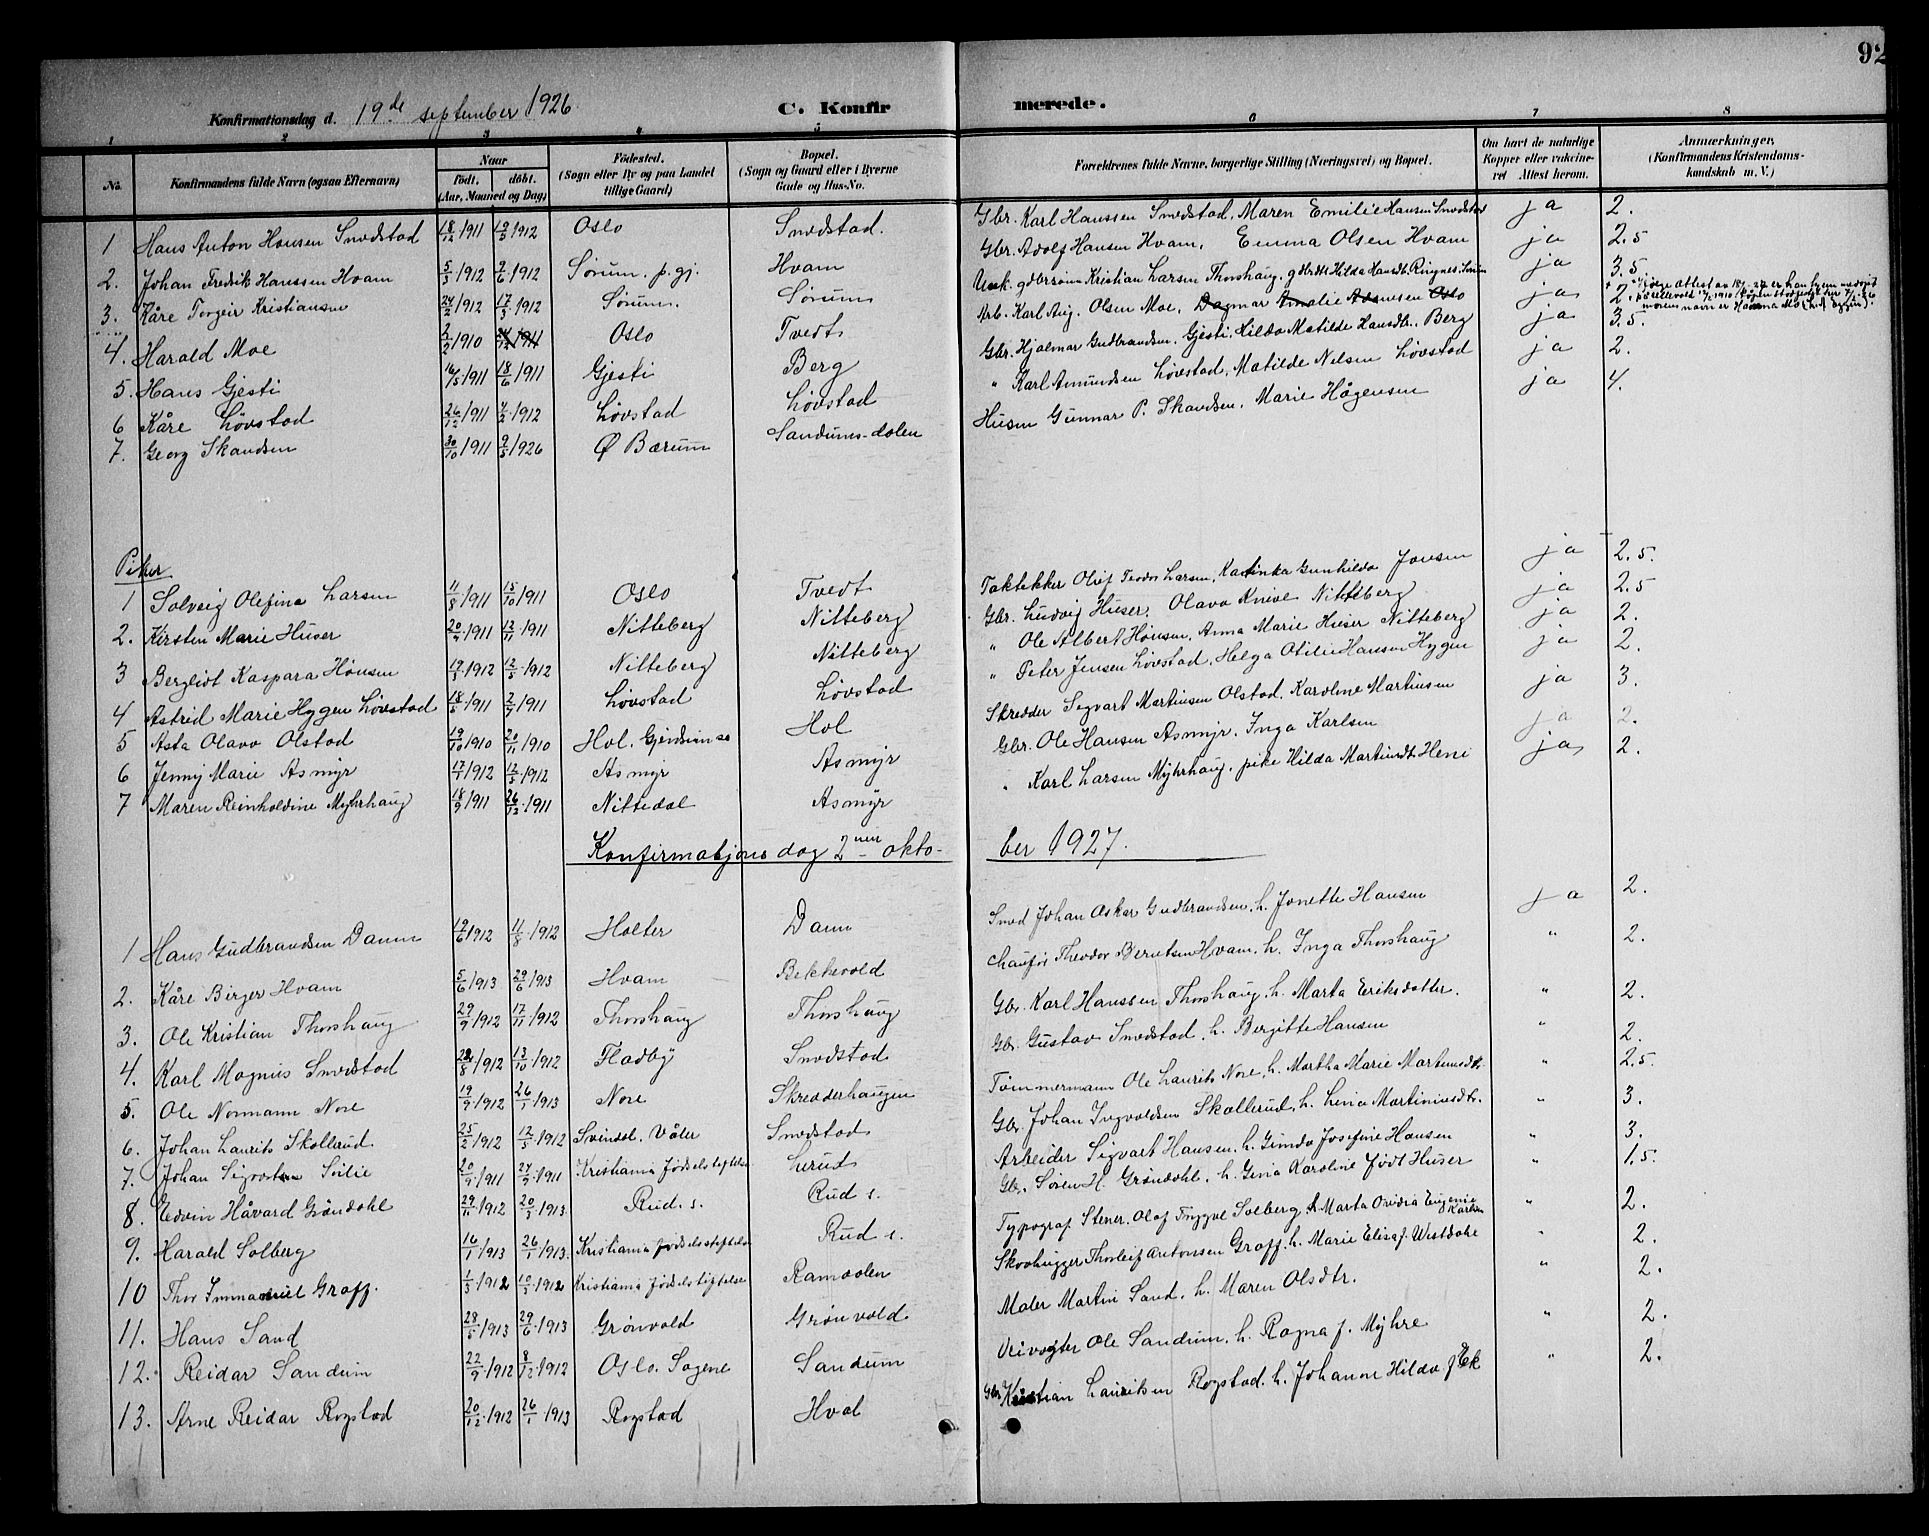 92
Konfirmationsdag d. 19de september 1926. C. Konfirmerede.
1 2 3 4 5 6 7 8
No. Konfirmandens fulde Navn (ogsaa Efternavn) Naar født. døbt. (Aar, Maaned og Dag) Fødested. (Sogn eller By og paa Landet tillige Gaard) Bopæl. (Sogn og Gaard eller i Byerne Gade og Hus-No. Forældrenes fulde Navne, borgerlige Stilling (Næringsvei) og Bopæl. Om havt de naturlige Kopper eller vaccineret Attest herom. Anmærkninger. (Konfirmandens Kristendomskundskab m. V.)
1 Hans Anton Hansen Smedstad 18/12 1911 19/5 1912 Oslo Smedstad. Gbr. Karl Hanssen Smedstad, Maren Emilie Hansen Smedstad ja 2.
2. Johan Fredrik Hanssen Hvam 5/3 1912 9/6 1912 Sørum p.gj. Hvam Gbr. Adolf Hansen Hvam, Emma Olsen Hvam ja 2.5
3. Kåre Torgeir Kristiansen 24/2 1912 17/3 1912 Sørum. Sørum Kristian Larsen Thorshaug, Hilda Hansdt. Ringnes, Sørum ja 3.5
4. Harald Moe 2/2 1910 Oslo Tvedt Arb. Karl Aug. Olsen Moe, Dagmar Amalie Oslo ja 2
5. Hans Gjesti 16/5 1911 18/6 1911 Gjesti Berg Gbr. Hjalmar Gudbrandsen Gjesti, Hilda Matilde Hansdt., Berg ja 3.5.
6 Kåre Løvstad 26/12 1911 4/2 1912 Løvstad Løvstad " Karl Amundsen Løvstad, Matilde Nelsen Løvstad ja 2.
7. Georg Skandsen 30/10 1911 9/5 1926 Ø Bærum Sandums-dalen Husm Gunnar P. Skandsen, Marie Hågensen ja 4.
Piker
1 Solveig Olefina Larsen 11/8 1911 15/10 1911 Oslo Tvedt Taktekker Olaf Teodor Larsen, Katinka Gunhilda Jonsen ja 2.5.
2. Kirsten Marie Huser 20/9 1911 12/11 1911 Nitteberg Nitteberg Gbr. Ludvig Huser, Olava Knive Nitteberg ja 2.5
3 Bergliot Kaspara Hønsen 19/3 1912 12/5 1912 Nitteberg Nitteberg " Ole Albert Hønsen, Anna Marie Huser Nitteberg ja 2.
4 Astrid Marie Hygen Løvstad 18/5 1911 2/7 1911 Løvstad Løvstad " Peter Jensen Løvstad, Helga Otilie Hansen Hygen ja 2.
5 Asta Olava Olstad 19/10 1910 20/11 1910 Hol, Gjerdrum Hol Skredder Segvart Martinsen Olstad, Karoline Martinsen ja 3.
6 Jenny Marie Asmyr 17/1 1912 12/5 1912 Asmyr Asmyr Gbr. Ole Hansen Asmyr, Inga Karlsen ja 2.
7 Maren Reinholdine Myhrhaug 18/9 1911 26/12 1911 Nittedal Asmyr " Karl Larsen Myhrhaug, pike Hilda Martinsdt. Heni ja 2.
Konfirmatjons dag 2nen oktober 1927.
1 Hans Gudbrandsen Dann 19/6 1912 11/8 1912 Holter Dann Smed Johan Oskar Gudbrandsen, h. Jonette Hansen ja 2.
2. Kåre Birger Hvam 5/6 1913 29/6 1913 Hvam Bekkevold Chaufør Theodor Berntsen Hvam, h. Inga Thorshaug " 2.
3. Ole Kristian Thorshaug 29/9 1912 17/11 1912 Thorshaug Thorshaug Gbr. Karl Hanssen Thorshaug, h. Marta Eriksdatter. " 2.
4. Karl Magnus Smedstad 22/8 1912 13/10 1912 Fladby Smedstad Gbr. Gustav Smedstad, h. Bergitte Hansen " 2.
5. Ole Normann Nore 19/9 1912 26/1 1913 Nore Skredderhaugen Tømmermann Ole Laurits Nore, h. Martha Marie Martinsdtr. " 2.5.
6. Johan Laurits Skollerud. 25/2 1912 12/5 1912 Svindal, Våler Smedstad Gbr. Johan Ingvoldsen Skollerud, h. Lina Martiniusdtr. " 3.
7. Johan Sigvartsen 20/9 1911 24/9 1911 Kristiania Fødselstiftelse Lerud Arbeider Sigvart Hansen, h. Ginda Josefine Hansen " 3.
8. Edvin Håvard Grøndahl 29/11 1912 20/3 1913 Rud. s. Rud s. Gbr. Søren H. Grøndahl, h. Gina Karoline født Huser " 1.5.
9. Harald Solberg 16/1 1913 26/1 1913. Kristiania fødselsstiftelse Rud s. Typograf Stener Olaf Trygve Solberg, h. Marta Ovidia Eugenie Karlsen " 2.
10 Thor Immanuel Graff. 1/3 1912 10/3 1912 Kristiania fødselstiftelse Ramdalen Skovhugger Thorleif Antonsen Graff, h. Marie Elisa f. Westdahl " 2.
11. Hans Sand 28/5 1913 29/6 1913 Grønvold Grønvold Maler Martin Sand, h. Maren Olsdtr. " 2.
12. Reidar Sandum 22/9 1912 8/12 1912 Oslo. Sagene Sandum Veivogter Ole Sandum, h. Ragna f. Myhre " 2.
13. Arne Reidar Rogstad 20/12 1912 26/1 1913 Rogstad Hval Gbr. Kristian Lauritsen Rogstad, h. Johanne Hilda f. Ek " 2.